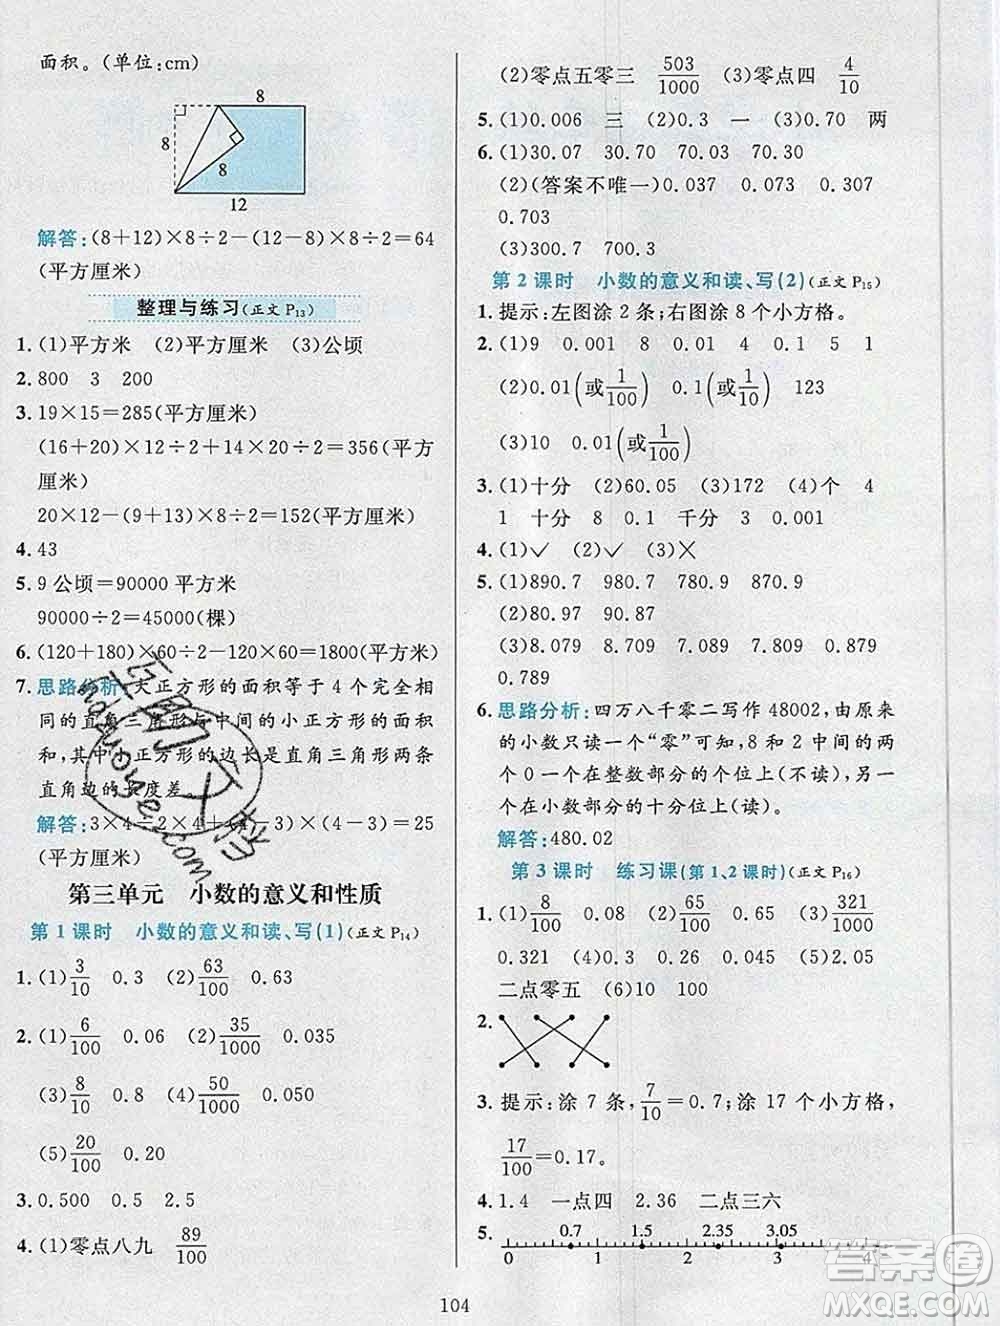 面积。(单位:cm)
8
8
8
12
解答:(8+12)×8÷2-(12-8)×8÷2=64
(平方厘米)
整理与练习(正文 P₁₃)
1. (1)平方米 (2)平方厘米 (3)公顷
2. 800 3 200
3. 19×15=285(平方厘米)
(16+20)×12÷2+14×20÷2=356(平方
厘米)
20×12-(9+13)×8÷2=152(平方厘米)
4. 43
5. 9公顷=90000 平方米
90000÷2=45000(棵)
6. (120+180)×60÷2-120×60=1800(平方米)
7. 思路分析:大正方形的面积等于 4 个完全相
同的直角三角形与中间的小正方形的面积
和,其中小正方形的边长是直角三角形两条
直角边的长度差。
解答:3×4÷2×4+(4-3)×(4-3)=25
(平方厘米)
第三单元 小数的意义和性质
第 1 课时 小数的意义和读、写(1)(正文 P₁₄)
1. (1)3/10 0.3 (2)63/100 0.63
2. (1)6/100 0.06 (2)35/1000 0.035
(3)8/10 0.8 (4)50/1000 0.050
(5)20/100 0.20
3. 0.500 0.5 2.5
4. (1)零点八九 89/100
(2)零点五零三 503/1000 (3)零点四 4/10
5. (1)0.006 三 (2)0.3 一 (3)0.70 两
6. (1)30.07 30.70 70.03 70.30
(2)(答案不唯一)0.037 0.073 0.307
0.703
(3)300.7 700.3
第 2 课时 小数的意义和读、写(2)(正文 P₁₅)
1. 提示:左图涂 2 条;右图涂 8 个小方格。
2. (1)9 0.01 0.001 0.1 5 1
(2)0.01(或1/100) 0.1(或1/10) 123
(3)10 0.01(或1/100)
3. (1)十分 (2)60.05 (3)172 (4)个 4
1 十分 8 0.1 千分 3 0.001
4. (1)✓ (2)✓ (3)×
5. (1)890.7 980.7 780.9 870.9
(2)80.97 90.87
(3)8.079 8.709 7.089 7.809 0.879
0.789
6. 思路分析:四万八千零二写作 48002,由原来
的小数只读一个“零”可知,8 和 2 中间的两
个 0 一个在整数部分的个位上(不读),另一
个在小数部分的十分位上(读)。
解答:480.02
第 3 课时 练习课(第 1、2 课时)(正文 P₁₆)
1. (1)8/100 0.08 (2)65/100 0.65 (3)321/1000
0.321 (4)5 0.26 0.045 (5)2.05
二点零五 (6)10 100
2.
3. 提示:涂 7 条,7/10=0.7;涂 17 个小方格,
17/100=0.17。
4. 1.4 一点四 2.36 二点三六
5. 0.7 1.5 2.35 3.05
0 1 2 3 4
104
答案圈
MXQE.COM